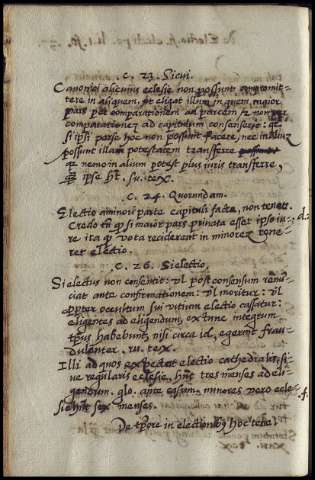 c. 23. Sicui.
Canonici alicuius eclesie non possunt compromit-
tere in aliquem, ut eligat illum in quem maior
pars per comparationem ad partem et non per
comparationem ad capitulum consenserit:
si ipsi parse hoc non possunt facere, nec in aliuz
possunt illam potestatem transferre
qz nemo in alium potest plus iuris transferre,
qz ipse ht. su. tex.
c. 24. Quorundam.
Electio a minori parte capituli facta, non tenet.
Credo tñ qr si maior pars privata esset ipso iu-
re ita qr vota reciderent in minorez tene-
ret electio.
c. 26. Si electio,
Si electus non consentit: vl post consensum renũ-
ciat ante confirmationem: vl moritur: vl
propter occultum sui vitium electio cassatur:
eligentes ad eligendum, ex tunc integrum
tpus habebunt, nisi circa id, egerint frau-
dulenter. su. tex.
Illi ad quos expectat electio cathedralis, si-
ve regularis eclesie, hnt tres menses ad eli-
gendum. glo. ante casum, minores vero ecle
sie hnt sex menses. .f.
De tpore in electionibus hoc tene.